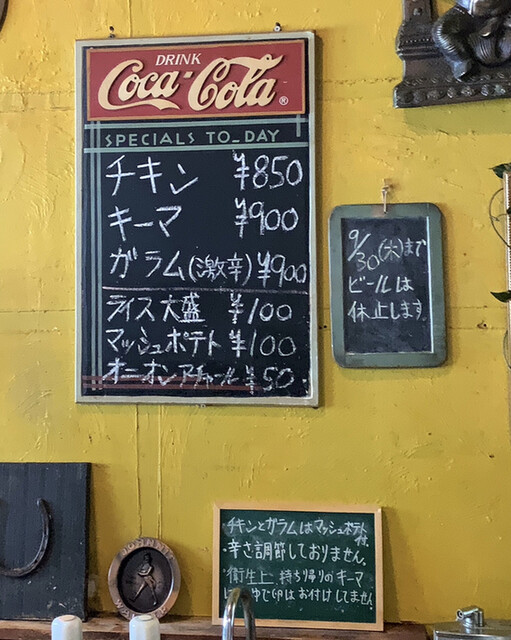 DRINK
Coca-Cola®
SPECIALS TO-DAY
チキン ¥850
キーマ ¥900
ガラム(激辛) ¥900
ライス大盛 ¥100
マッシュポテト ¥100
オニオンアチャール ¥50
9/30(木)まで
ビールは
休止します。
・チキンとガラムはマッシュポテト付
・辛さ調節しておりません。
・衛生上 持ち帰りのキーマ
ゆで卵はお付けしてません
JOHNNIE